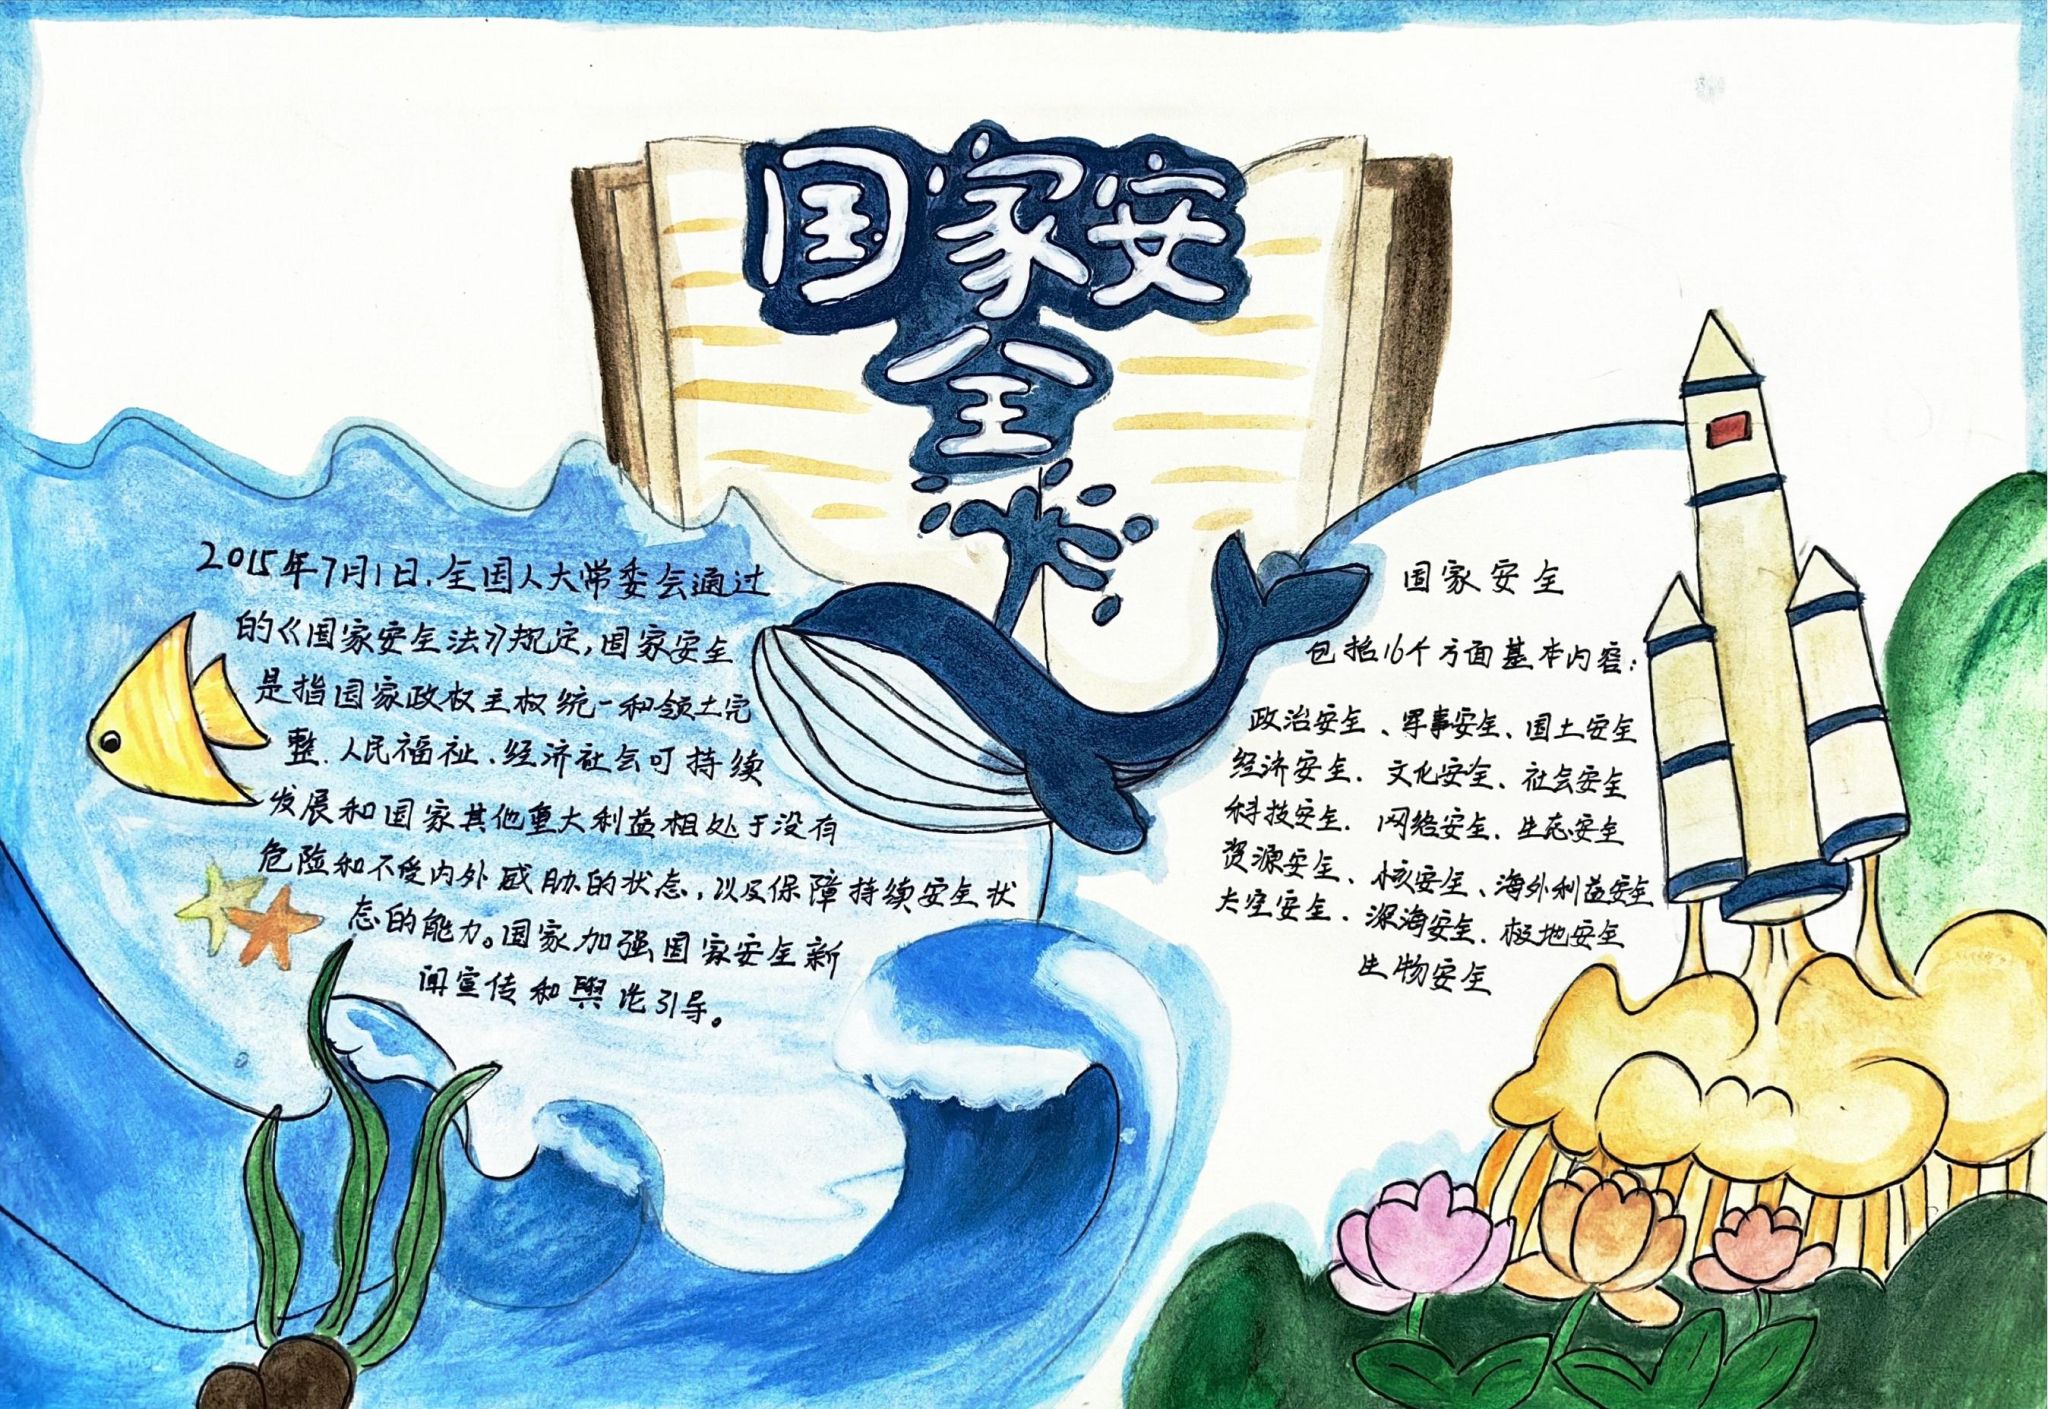 国家安
全
2015年7月1日、全国人大常委会通过
的《国家安全法》规定,国家安全
是指国家政权主权统一和领土完
整、人民福祉、经济社会可持续
发展和国家其他重大利益相对于没有
危险和不受内外威胁的状态,以及保障持续安全状
态的能力。国家加强国家安全新
闻宣传和舆论引导。
国家安全
包括16个方面基本内容:
政治安全、军事安全、国土安全
经济安全、文化安全、社会安全
科技安全、网络安全、生态安全
资源安全、核安全、海外利益安全
太空安全、深海安全、极地安全
生物安全